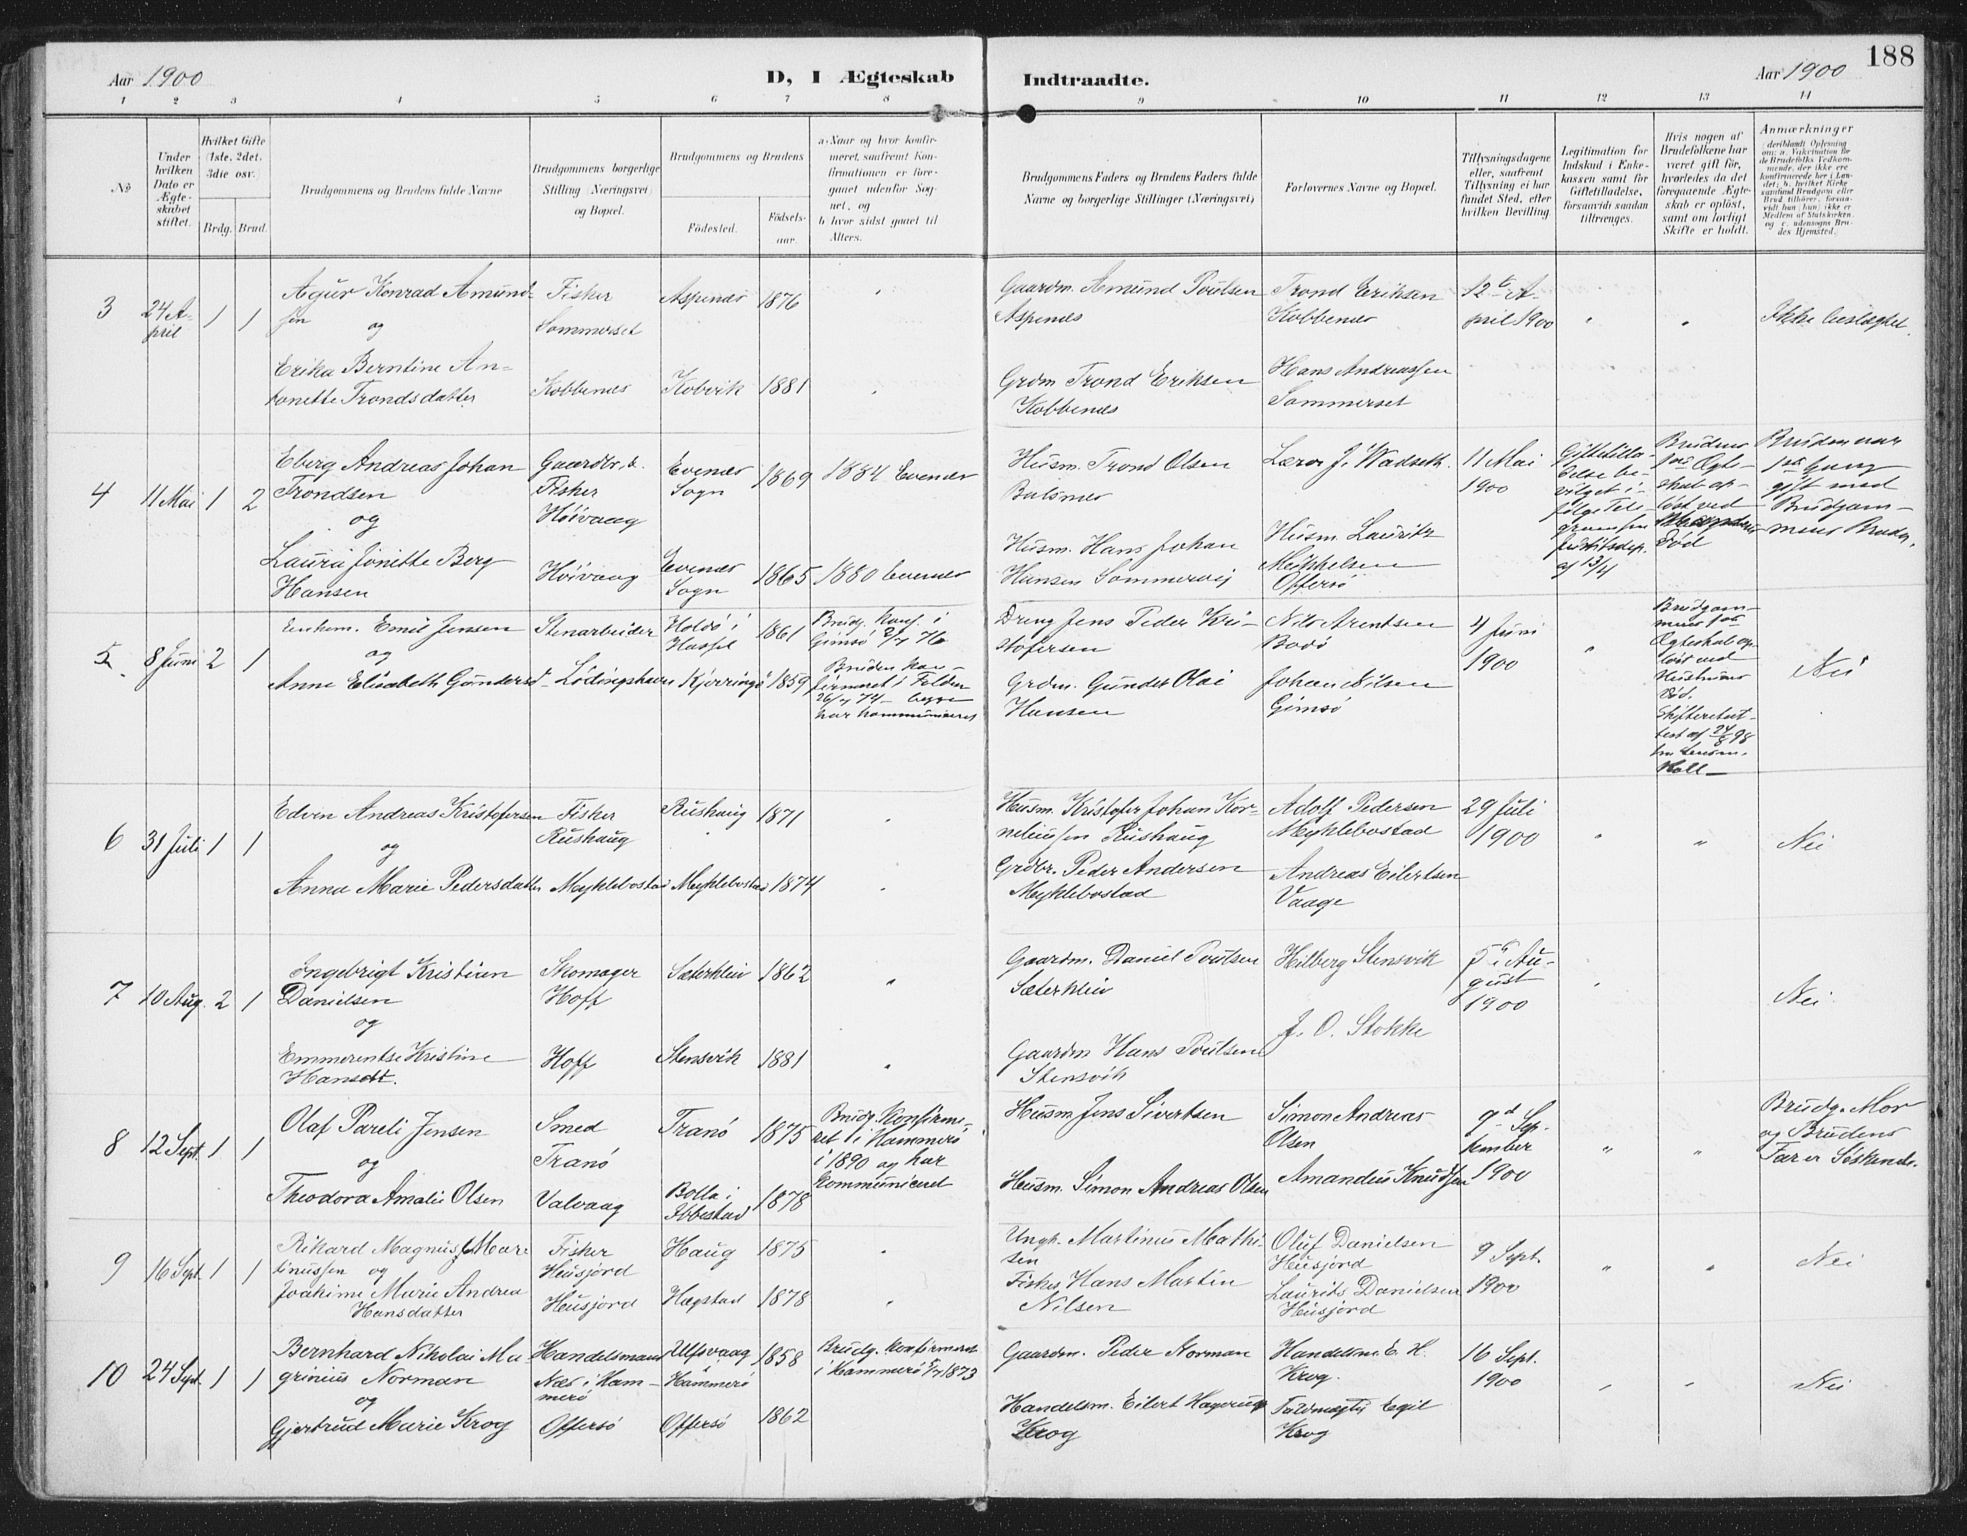 Aar 1900
D, I Ægteskab
Indtraadte.
Aar 1900
188
1 2 3 4 5 6 7 8 9 10 11 12 13 14
No
Under hvilken Dato er Ægteskabet stiftet.
Hvilket Gifte (1ste, 2det, 3die osv.
Brdg. Brud.
Brudgommens og Brudens fulde Navne
Brudgommens borgerlige Stilling (Næringsvei) og Bopæl.
Brudgommens og Brudens
Fødested.
Fødsels-aar.
a. Naar og hvor konfirmeret, saafremt Konfirmationen er foregaaet udenfor Sognet, og
b. hvor sidst gaaet til Alters.
Brudgommens Faders og Brudens Faders fulde Navne og borgerlige Stillinger (Næringsvei)
Forlovernes Navne og Bopæl.
Tillysningsdagene eller, saafremt Tillysning ei har fundet Sted, efter hvilken Bevilling.
Legitimation for Indskud i Enkekassen samt for Giftetilladelse, forsaavidt saadan tiltrænges.
Hvis nogen af Brudefolkene har været gift før, hvorledes da det foregaaende Ægteskab er opløst, samt om lovligt Skifte er holdt.
Anmærkninger
3
24 April
1 1
Konrad Amundsen
og
Erika Berntine Antonette Trondsdatter
Fisker
Sommerset
Kobbenes
Aspenes 1876
Kobvik 1881
Gaardm. Amund Poulsen
Aspenes
Grdm Trond Eriksen
Kobbenes
Trond Eriksen
Kobbenes
Hans Andreassen
Sommerset
12te April 1900
Ikke beslægtet.
4
11 Mai
1 2
Eberg Andreas Johan
Trondsen
og
Laura Jonette Berg
Hansen
Gaardbr. &
Fisker
Høivaag
Høivaag
Evenes
Sogn
1869
1884 Evenes
Evenes
Sogn
1865 1880 Evenes
Husm. Trond Olsen
Balsnes
Husm. Hans Johan
Hansen Sommervig
Lærer J. Wadseth.
Husm. Lauritz
Mikkelsen
Offersø
11 Mai
1900
Giftetilladelse bevilget ifølge Telegram fra Justitsdep. af 13/4
Brudens 1ste Ægteskab opløst ved Død
Bruden var
1ste Gang
gift med
Brudgommens Broder.
5
8 Juni
2 1
Enkem. Emil Jensen
og
Anne Elisabeth Gundersd
Stenarbeider
Lødingshavn
Holdø i
Hassel
1861
Kjerringø 1859
Brudg. konf. i
Gimsø 2/7 76
Bruden konfirmeret i Folden
26/7 74 – begge
har kommuniceret
Dreng Jens Peder Kristofersen
Grdm. Gunder Olai
Hansen
Nils Arentsen
Bodø
Johan Nilsen
Gimsø
4 Juni
1900
Brudgommens 1ste
Ægteskab opløst ved
Hustruens
Død.
Skifteretsattest af 24/8 98
fra Lensm.
Holl –
Nei
6
31 Juli
1 1
Edvin Andreas Kristofersen
og
Anna Marie Pedersdatter
Fisker
Rushaug
Myklebostad
Rushaug 1871
Myklebostad 1874
Husm. Kristofer Johan Korneliussen Rushaug
Grdbr. Peder Andersen
Myklebostad
Adolf Pedersen
Myklebostad
Andreas Eilertsen
Vaage
29 Juli
1900
Nei
7
10 Aug.
2 1
Ingebrigt Kristian
Danielsen
og
Emmerentse Kristine
Hansdt.
Skomager
Hoff
Hoff
Sæterkleiv 1862
Stensvik 1881
Gaardm. Daniel Poulsen
Sæterkleiv
Gaardm Hans Poulsen
Stensvik
Hilberg Stensvik
J. O. Stokke
5te August
1900
Nei
8
12 Sept.
1 1
Olaf Pareli Jensen
og
Theodora Amalie Olsen
Smed
Tranø
Valvaag
Tranø 1875
Bolla i
Ibbestad 1878
Brudg. Konfirmeret i Hammerø
i 1890 og har
kommuniceret
Husm Jens Sivertsen
Husm. Simon Andreas Olsen
Simon Andreas
Olsen
Amandus Knudsen
9d September
1900
Brudg. Mor
og Brudens
Far er Søskende.
9
16 Sept.
1 1
Rikard Magnus Martinussen og
Joakime Marie Andrea
Hansdatter
Fisker
Heusjord
Heusjord
Haug 1875
Hægstad 1878
Ungk. Martinus Mathisen
Fisker Hans Martin
Nilsen
Oluf Danielsen
Heusjord
Laurits Danielsen
Heusjord
9 Sept.
1900
Nei
10
24 Sept.
1 1
Bernhard Nikolai Magrinius Norman
og
Gjertrud Marie Krog
Handelsmand
Næs i Hammerø
Offersø
Ulfsvaag
Hammerø
1858
Offersø 1862
Brudg. Konfirmeret
i Hammerø 6/7 1873
Gaardm. Peder Norman
Handelsm. Eilert Hagerup
Krog
Handelsm. E. H.
Krog.
Fuldmægtig Egil
Krog
16 Sept.
1900
Nei